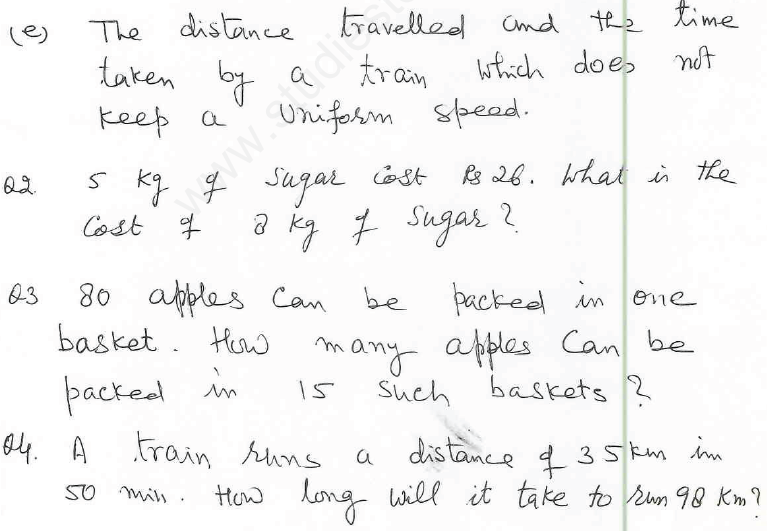 (e) The distance travelled and the time
taken by a train which does not
keep a uniform speed.
Q2. 5 kg of sugar cost Rs 26. What is the
Cost of 8 kg of sugar?
Q3 80 apples Can be packed in one
basket. How many apples Can be
packed in 15 such baskets?
Q4. A train runs a distance of 35 km in
50 min. How long will it take to run 98 Km?